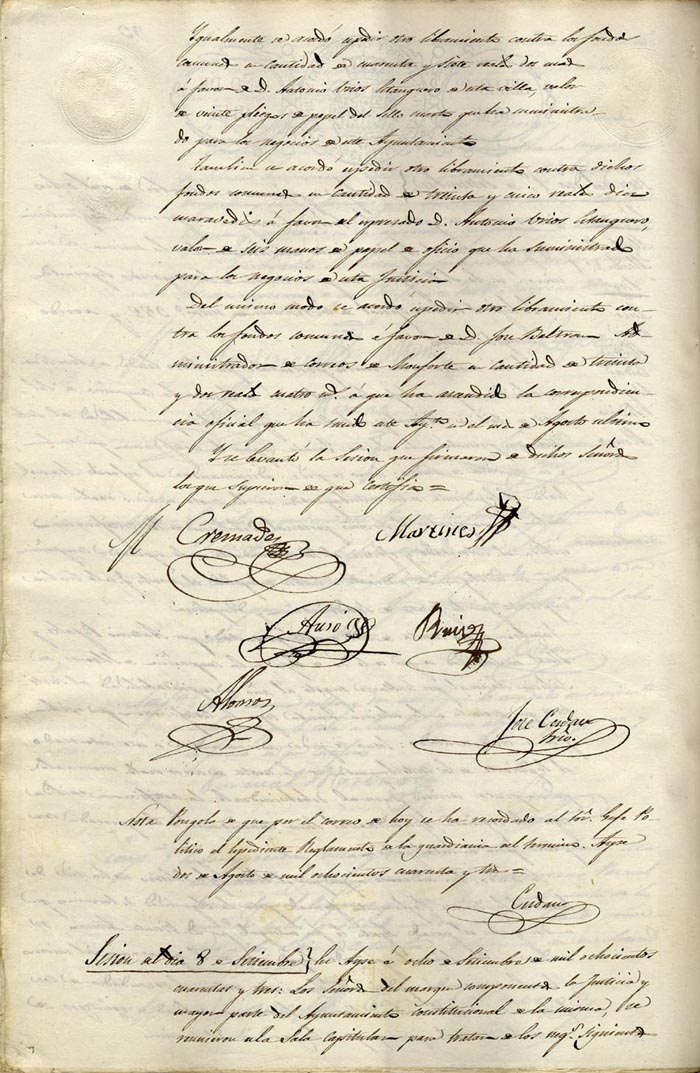 Igualmente se acordó espedir otro libramiento contra los fondos
comunes en cantidad de cuarenta y siete reales dos mrs
á favor de D. Antonio Urios Estanquero de esta villa, valor
de veinte pliegos de papel del sello cuarto que ha suministra
do para los negocios de este Ayuntamiento
Tambien se acordó espedir otro libramiento contra dichos
fondos comunes en cantidad de treinta y cinco reales diez
maravedis á favor del espresado D. Antonio Urios Estanquero,
valor de seis manos de papel de oficio que ha suministrado
para los negocios de esta Justicia
Del mismo modo se acordó espedir otro libramiento con-
tra los fondos comunes á favor de D. Jose Beltran Ad
ministrador de correos de Monforte en cantidad de treinta
y dos reales cuatro ms. á que ha ascendido la correspondien
cia oficial que ha tenido este Ayto en el mes de Agosto ultimo
Y se levantó la Sesion que firmaron de dichos Señores
los que supieron de que certifico =
Cremades Martinez
Auso Ruiz
Alonso
Jose Cerdan
Srio.
Nota Pongola de que por el correo de hoy se ha recordado al Sor. Gefe Po
litico el Espediente Reglamento de la guardiania del termino. Aspe
dos de Agosto de mil ochocientos cuarenta y tres =
Cerdan
Sesion del dia 8 de Setiembre} En Aspe á ocho de Setiembre de mil ochocientos
cuarenta y tres: Los Señores del margen componentes la Justicia y
mayor parte del Ayuntamiento constitucional de la misma, se
reunieron en la Sala Capitular para tratar de los negs. siguientes